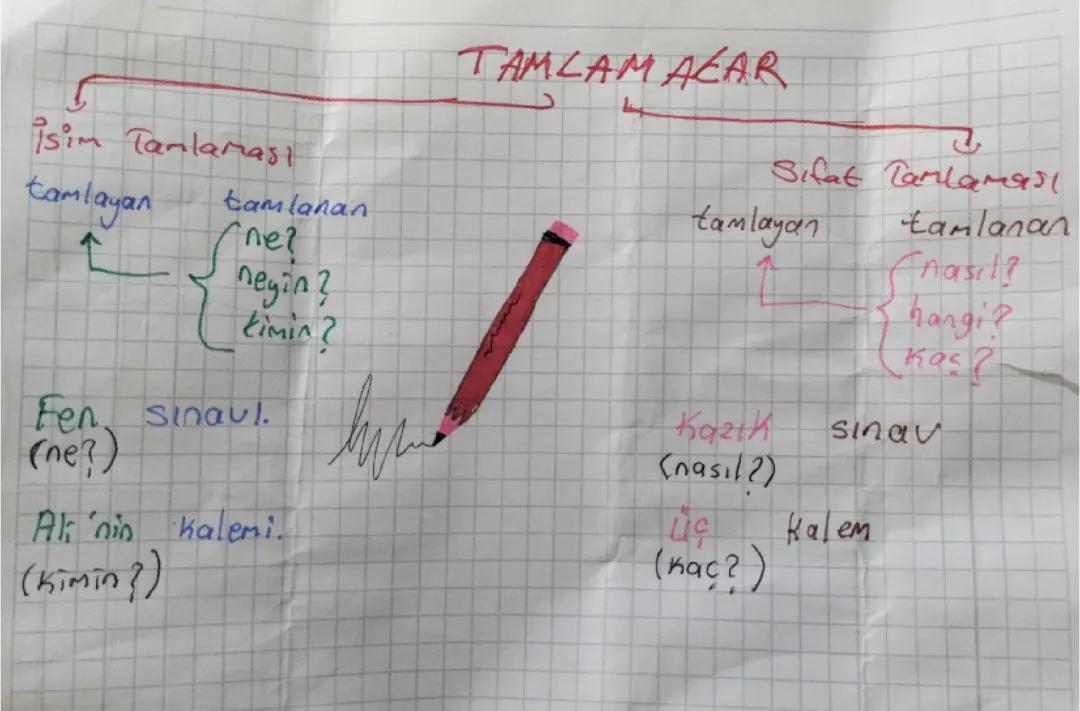 TAMLAMALAR
İsim Tamlaması
tamlayan tamlanan
ne?
neyin?
kimin?
Fen sınavı.
(ne?)
Ali'nin kalemi.
(kimin?)
Sıfat Tamlaması
tamlayan tamlanan
nasıl?
hangi?
kaç?
Kazık sınav
(nasıl?)
üç kalem
(kaç?)